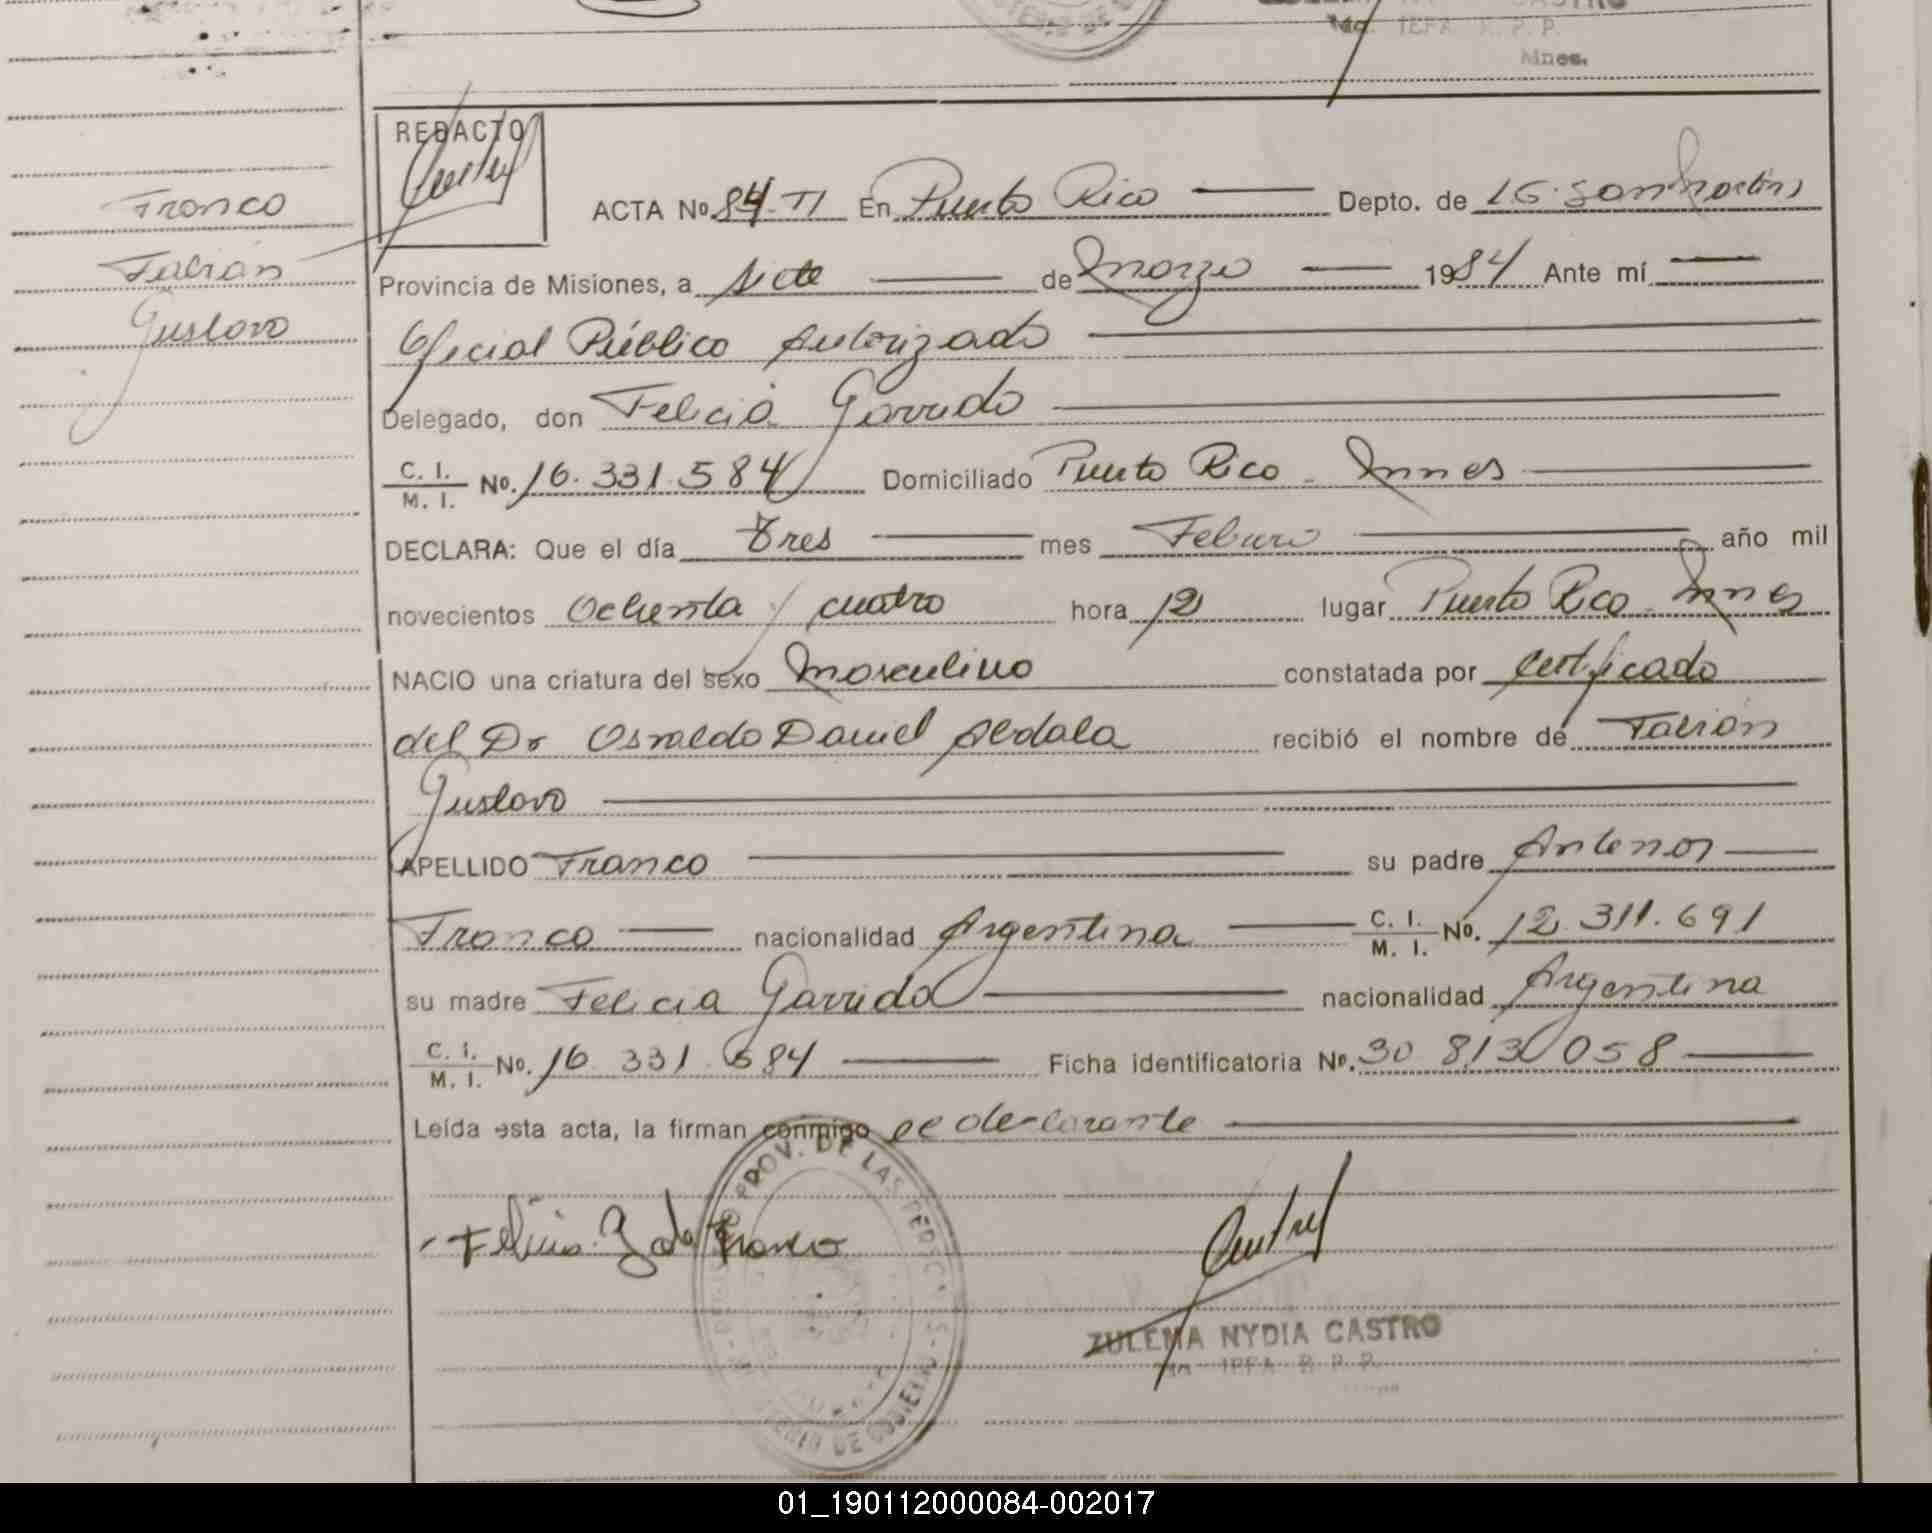 CASTRO
IEFA R. P. P.
Mnes.
REDACTO
Franco
Fabian
Gustavo
ACTA Nº 84-TI En Puerto Rico Depto. de LG. San Martin
Provincia de Misiones, a siete de Marzo 1984 Ante mí
Oficial Público Autorizado
Delegado, don Felicia Garrido
C. I. / M. I. Nº. 16.331.584 Domiciliado Puerto Rico - Mnes
DECLARA: Que el día tres mes Febrero año mil
novecientos ochenta y cuatro hora 12 lugar Puerto Rico - Mnes
NACIO una criatura del sexo Masculino constatada por certificado
del Dr Osvaldo Daniel recibió el nombre de Fabián
Gustavo
APELLIDO Franco su padre Antenor
Franco nacionalidad Argentina C. I. / M. I. Nº. 12.311.691
su madre Felicia Garrido nacionalidad Argentina
C. I. / M. I. Nº. 16.331.584 Ficha identificatoria Nº. 30 813 058
Leída esta acta, la firman conmigo el declarante
Felicia G de Franco
PROV. DE LAS PERSONAS
DE GOBIERNO
ZULEMA NYDIA CASTRO
IEFA R. P. P.
01_190112000084-002017